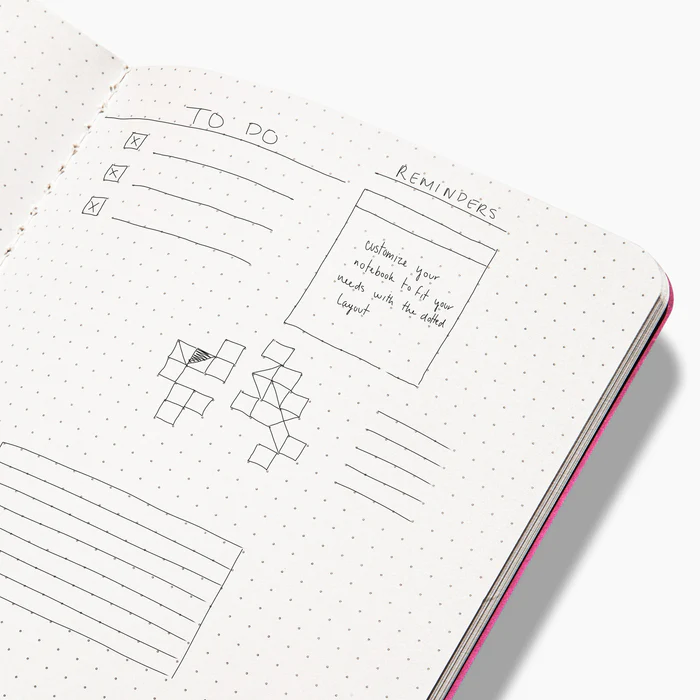 TO DO
x
x
x
REMINDERS
customize your
notebook to fit your
needs with the dotted
layout